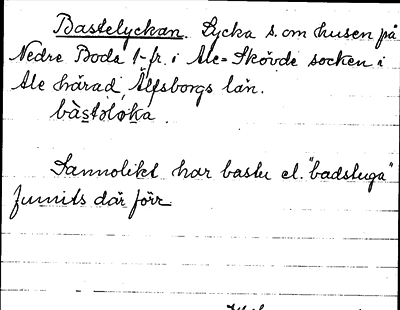 Bastelyckan. Lycka s. om husen på
Nedre Boda 1-fr. i Ale-Skövde socken i
Ale härad, Älfsborgs län.
bàstəlø̀ka.
Sannolikt har bastu el. "badstuga"
funnits där förr